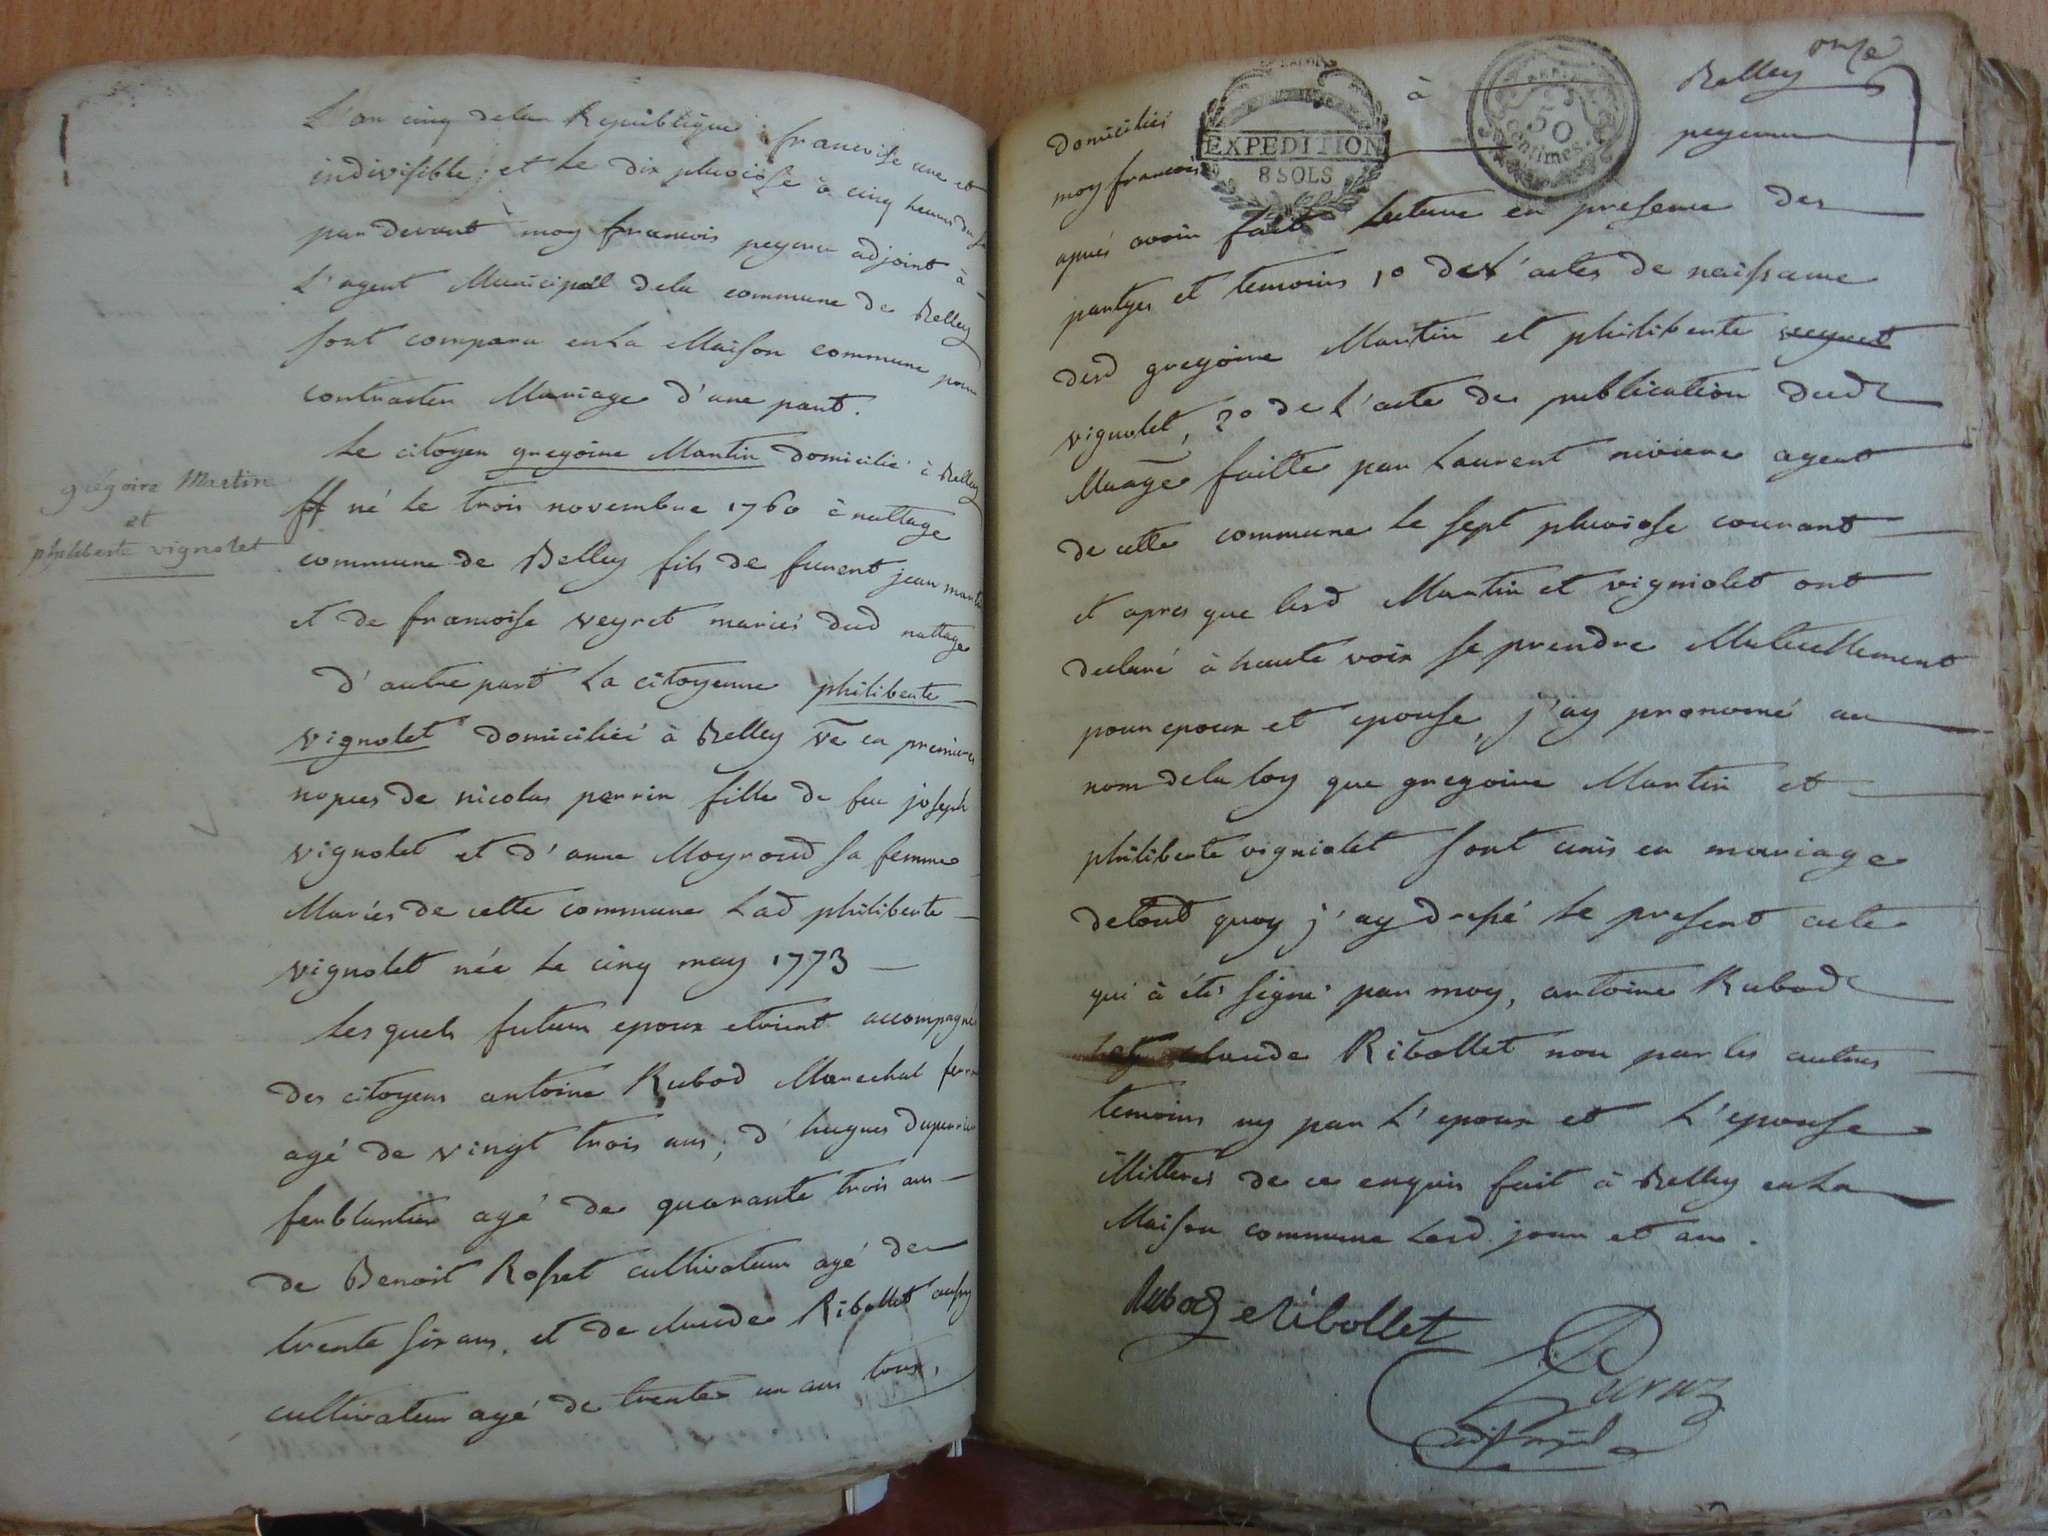 L'an cinq dela Republique francoise une et
indivisible; et le dix pluviose à cinq heures du
par devant moy francois peyenu adjoint à
L'agent Municipal dela commune de Belley
sont comparu en La Maison commune pour
contracter Mariage d'une part.
Le citoyen gregoire Martin domicilié à Belley
né le trois novembre 1760 à nattage
commune de Belley fils de furent jean martin
et de francoise veyret mariés dud nattage
d'autre part La citoyenne philiberte
vignolet domiciliéé à Belley ve en premieres
nopces de nicolas perrin fille de feu joseph
vignolet et d'anne Moyroud sa femme
Mariés de cette commune Lad philiberte
vignolet née le cinq may 1773
Lesquels futurs epoux etoient accompagnés
des citoyens antoine Rubod Marechal
agé de vingt trois ans, d'hugues
ferblantier agé de quarante trois ans
de Benoit Rosset cultivateur agé de
trente six ans, et de claude Ribollet aussy
cultivateur agé de trente un ans tous,
grégoire Martin
et
philiberte vignolet
onze
domiciliés à Belley
moy francois peyenu
EXPEDITION
8 SOLS
50
Centimes.
après avoir fait Lecture en presence des
partyes et temoins 1o des actes de naissance
desd gregoire Martin et philiberte veyret
vignolet, 2o de L'acte de publication dud
Mariage faitte par Laurent riviere agent
de cette commune le sept pluviose courant
et apres que lesd Martin et vigniolet ont
declaré à haute voix se prendre Mutuellement
pour epoux et epouse, j'ay prononcé au
nom dela loy que gregoire Martin et
philiberte vigniolet sont unis en mariage
detout quoy j'ay dressé le present acte
qui à étés signé par moy, antoine Rubod
claude Ribollet non par les autres
temoins ny par L'epoux et L'epouse
illitterés de ce enquis fait à Belley en La
Maison commune Lesd. jour et an.
Rubod Ribollet